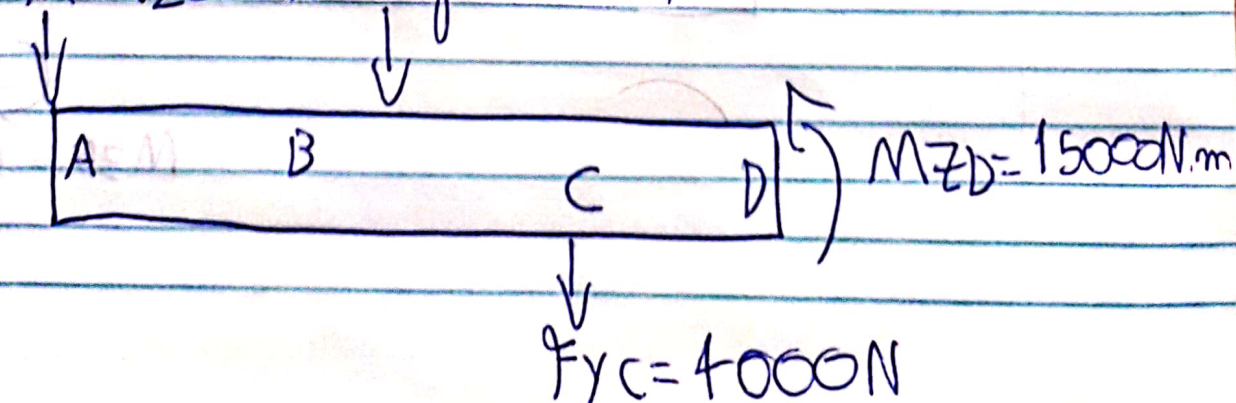 A B C D MZD=15000N.m
FyC=4000N